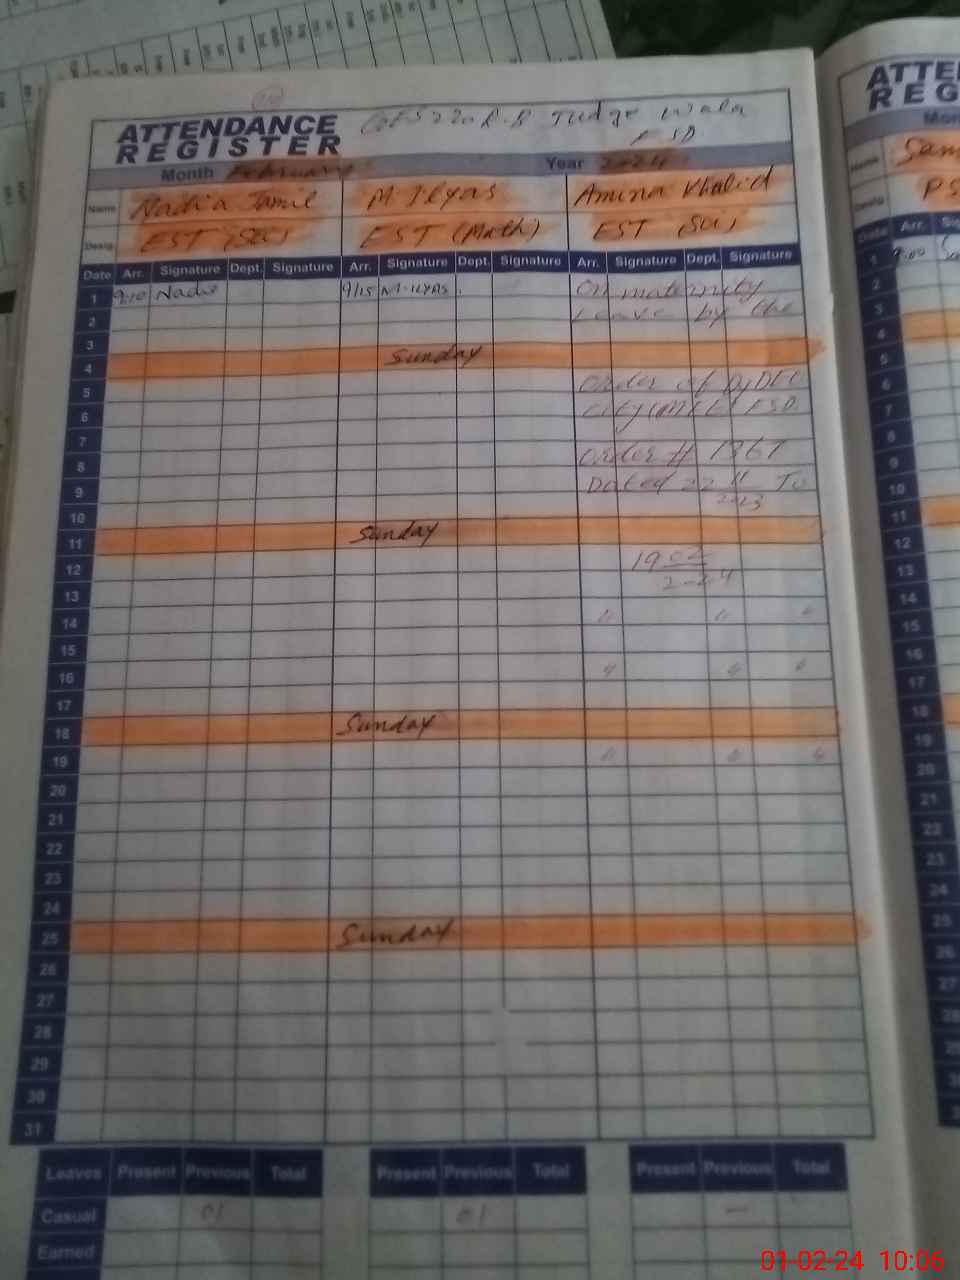 ATTENDANCE
REGISTER
Judge Wala
FSD
Month February Year 2024
Name Nadia Jamil M Ilyas Amina Khalid
Desig. EST (Sci) EST (Math) EST (Sci)
Date Arr. Signature Dept. Signature Arr. Signature Dept. Signature Arr. Signature Dept. Signature
1 9:10 Nadia 9/15 M.ILYAS On maternity
2 Leave by the
3
4 Sunday
5 Order of Dy DEO
6 City (M.E.E) FSD
7
8 Order # 1367
9 Dated 22 11 To
2023
10
11 Sunday
12 19 02
2-24
13
14 " " "
15
16 " " "
17
18 Sunday
19 " " "
20
21
22
23
24
25 Sunday
26
27
28
29
30
31
Leaves Present Previous Total Present Previous Total Present Previous Total
Casual 01 01 —
Earned
ATTE
REG
Mon
Name Sam
Desig. PS
Date Arr. Sig
1 9:00
2
3
4
5
6
7
8
9
10
11
12
13
14
15
16
17
18
19
20
21
22
23
24
25
26
27
28
29
30
01-02-24 10:06